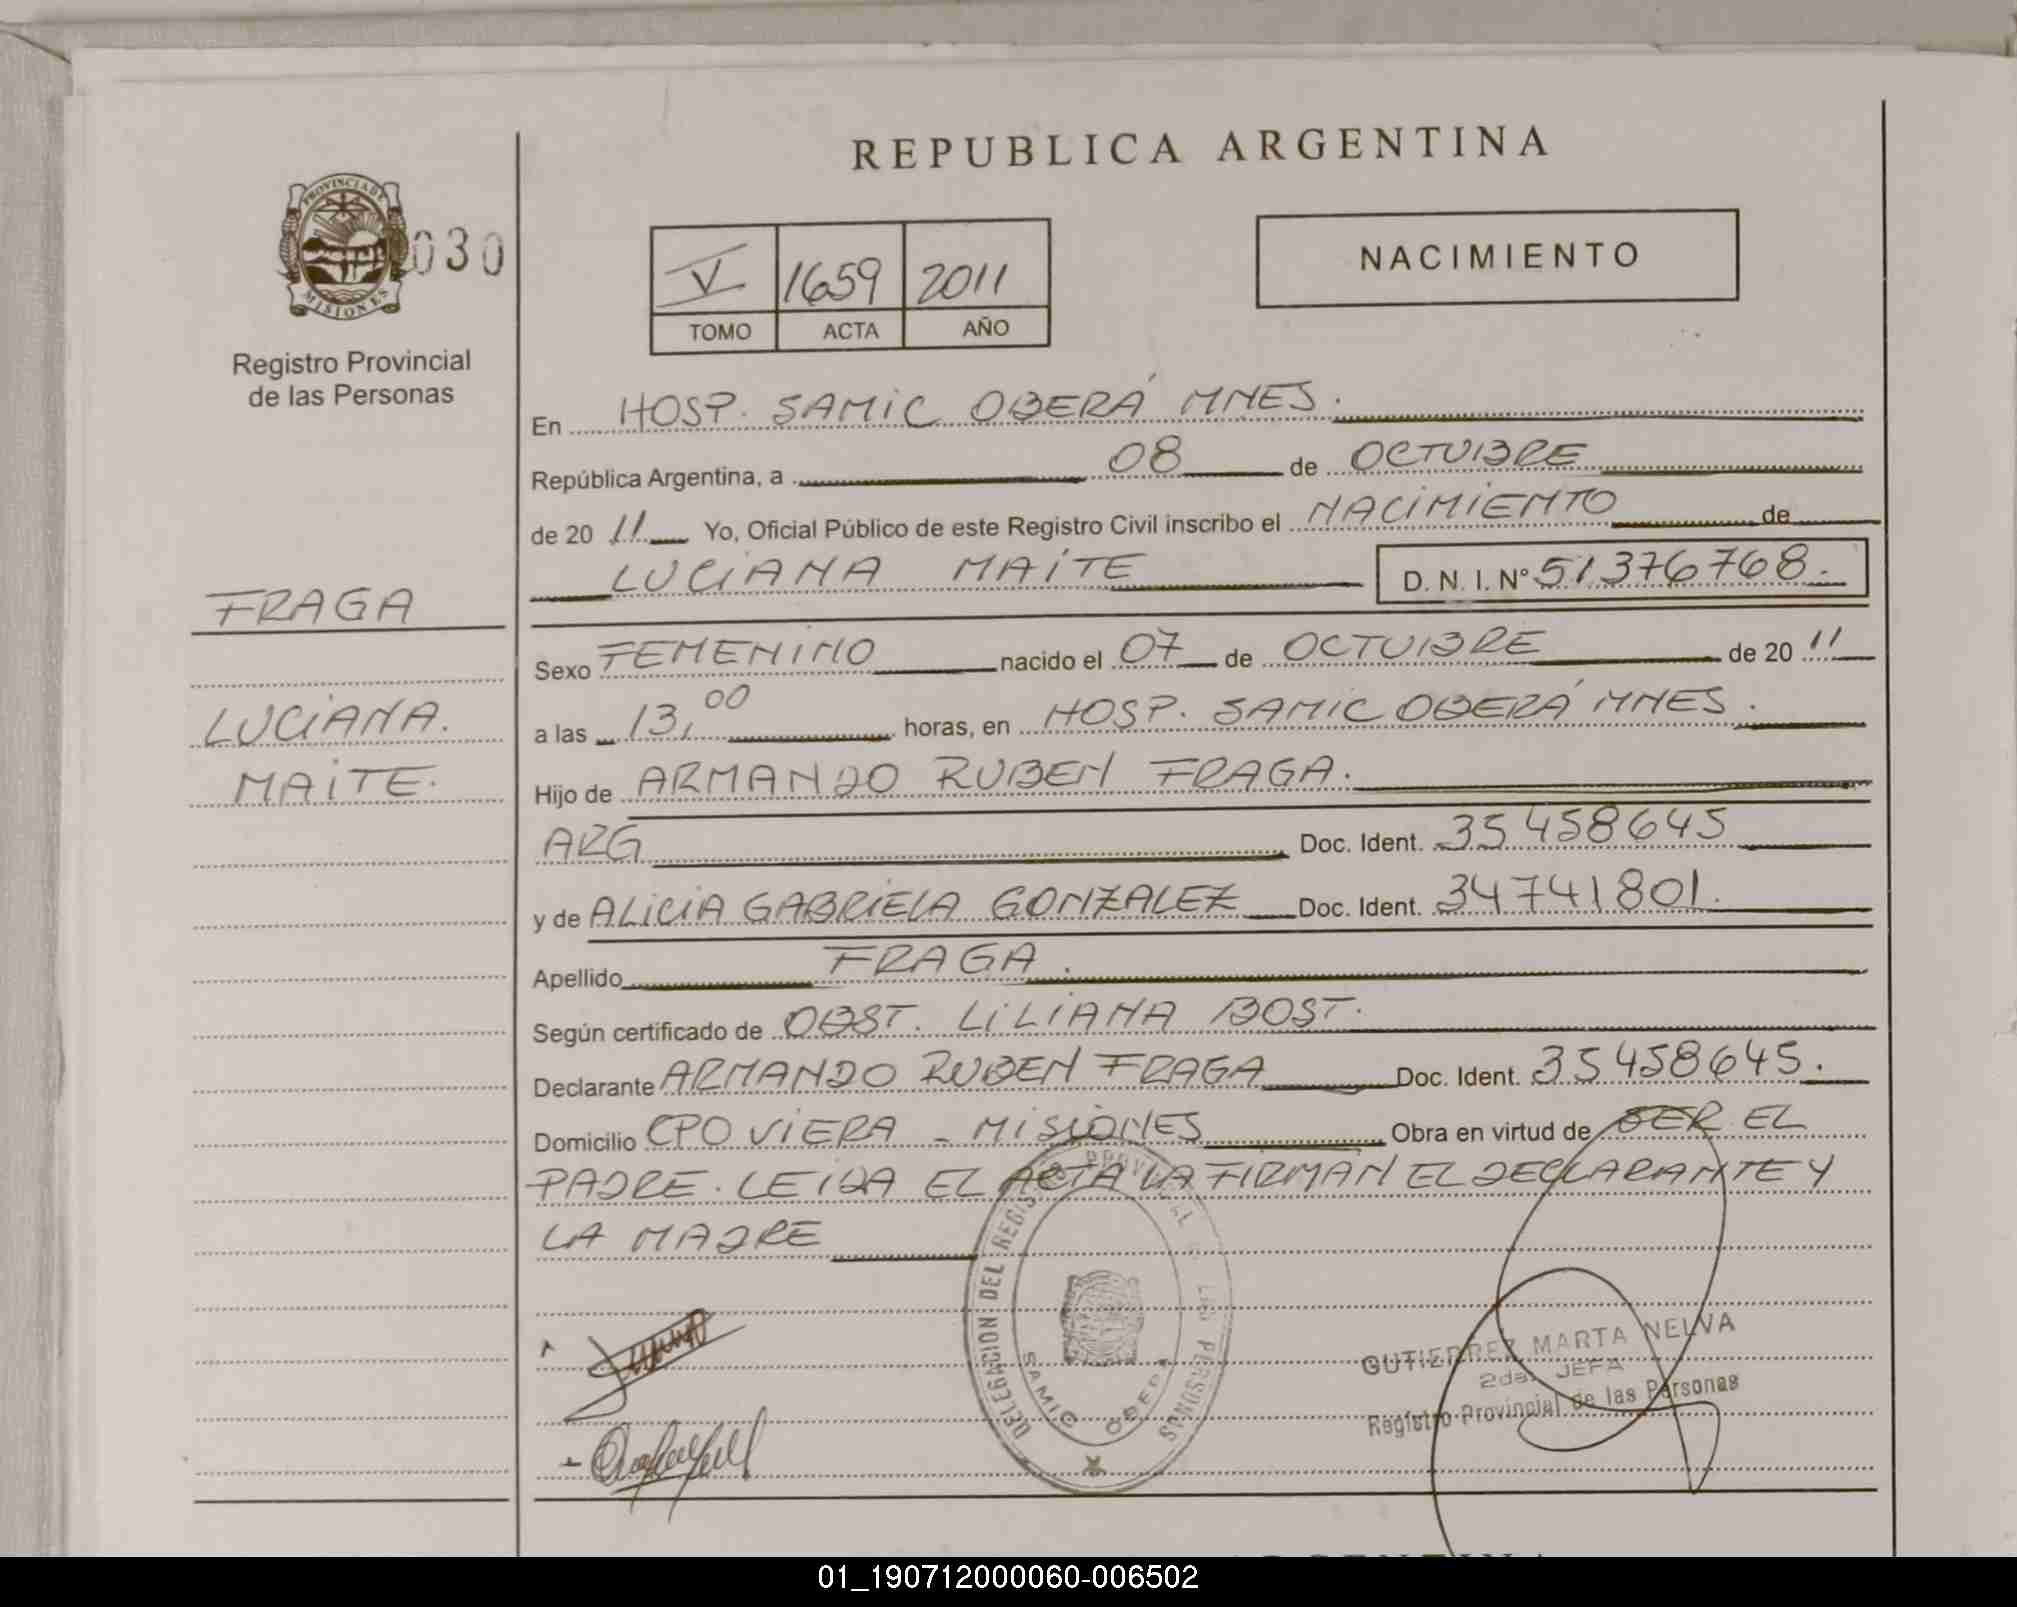 REPUBLICA ARGENTINA
PROVINCIA DE
MISIONES
030
Registro Provincial
de las Personas
V 1659 2011
TOMO ACTA AÑO
NACIMIENTO
En HOSP. SAMIC OBERÁ MNES.
República Argentina, a 08 de OCTUBRE
de 20 11 Yo, Oficial Público de este Registro Civil inscribo el NACIMIENTO de
LUCIANA MAITE D. N. I. Nº 51376768.
FRAGA
LUCIANA.
MAITE.
Sexo FEMENINO nacido el 07 de OCTUBRE de 20 11
a las 13,00 horas, en HOSP. SAMIC OBERÁ MNES.
Hijo de ARMANDO RUBEN FRAGA.
ARG Doc. Ident. 35458645
y de ALICIA GABRIELA GONZALEZ Doc. Ident. 34741801.
Apellido FRAGA.
Según certificado de OBST. LILIANA BOST.
Declarante ARMANDO RUBEN FRAGA Doc. Ident. 35458645.
Domicilio CPO VIERA - MISIONES Obra en virtud de SER EL
PADRE. LEIDA EL ACTA LA FIRMAN EL DECLARANTE Y
LA MADRE
DELEGACION DEL REGISTRO PROVINCIAL DE LAS PERSONAS
SAMIC OBERA
GUTIERREZ MARTA NELVA
2da. JEFA
Registro Provincial de las Personas
01_190712000060-006502